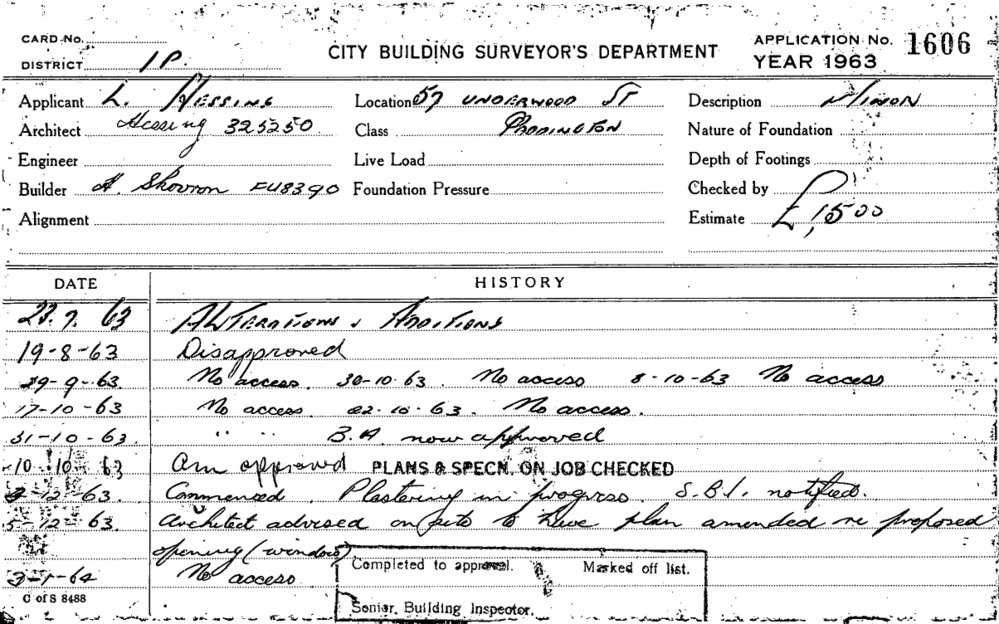 CARD No.
DISTRICT 1P.
CITY BUILDING SURVEYOR'S DEPARTMENT
APPLICATION No. 1606
YEAR 1963
Applicant L. Hessing Location 57 UNDERWOOD ST Description MINOR
Architect Hessing 325250 Class PADDINGTON Nature of Foundation
Engineer Live Load Depth of Footings
Builder H. Skovron FU8390 Foundation Pressure Checked by
Alignment Estimate £1500
DATE HISTORY
23.7.63 ALTERATIONS & ADDITIONS
19-8-63 Disapproved
No access. 30-10-63. No access 8-10-63 No access
17-10-63 No access. 22-10-63. No access.
31-10-63. " " B.A. now approved
10.10.63 Am approved PLANS & SPECN. ON JOB CHECKED
-12-63. Commenced. Plastering in progress. S.B.I. notified.
5-12-63 Architect advised on to have plan amended re proposed
opening (window)
3-1-64 No access
Completed to approval. Marked off list.
Senior Building Inspector.
C of S 8488